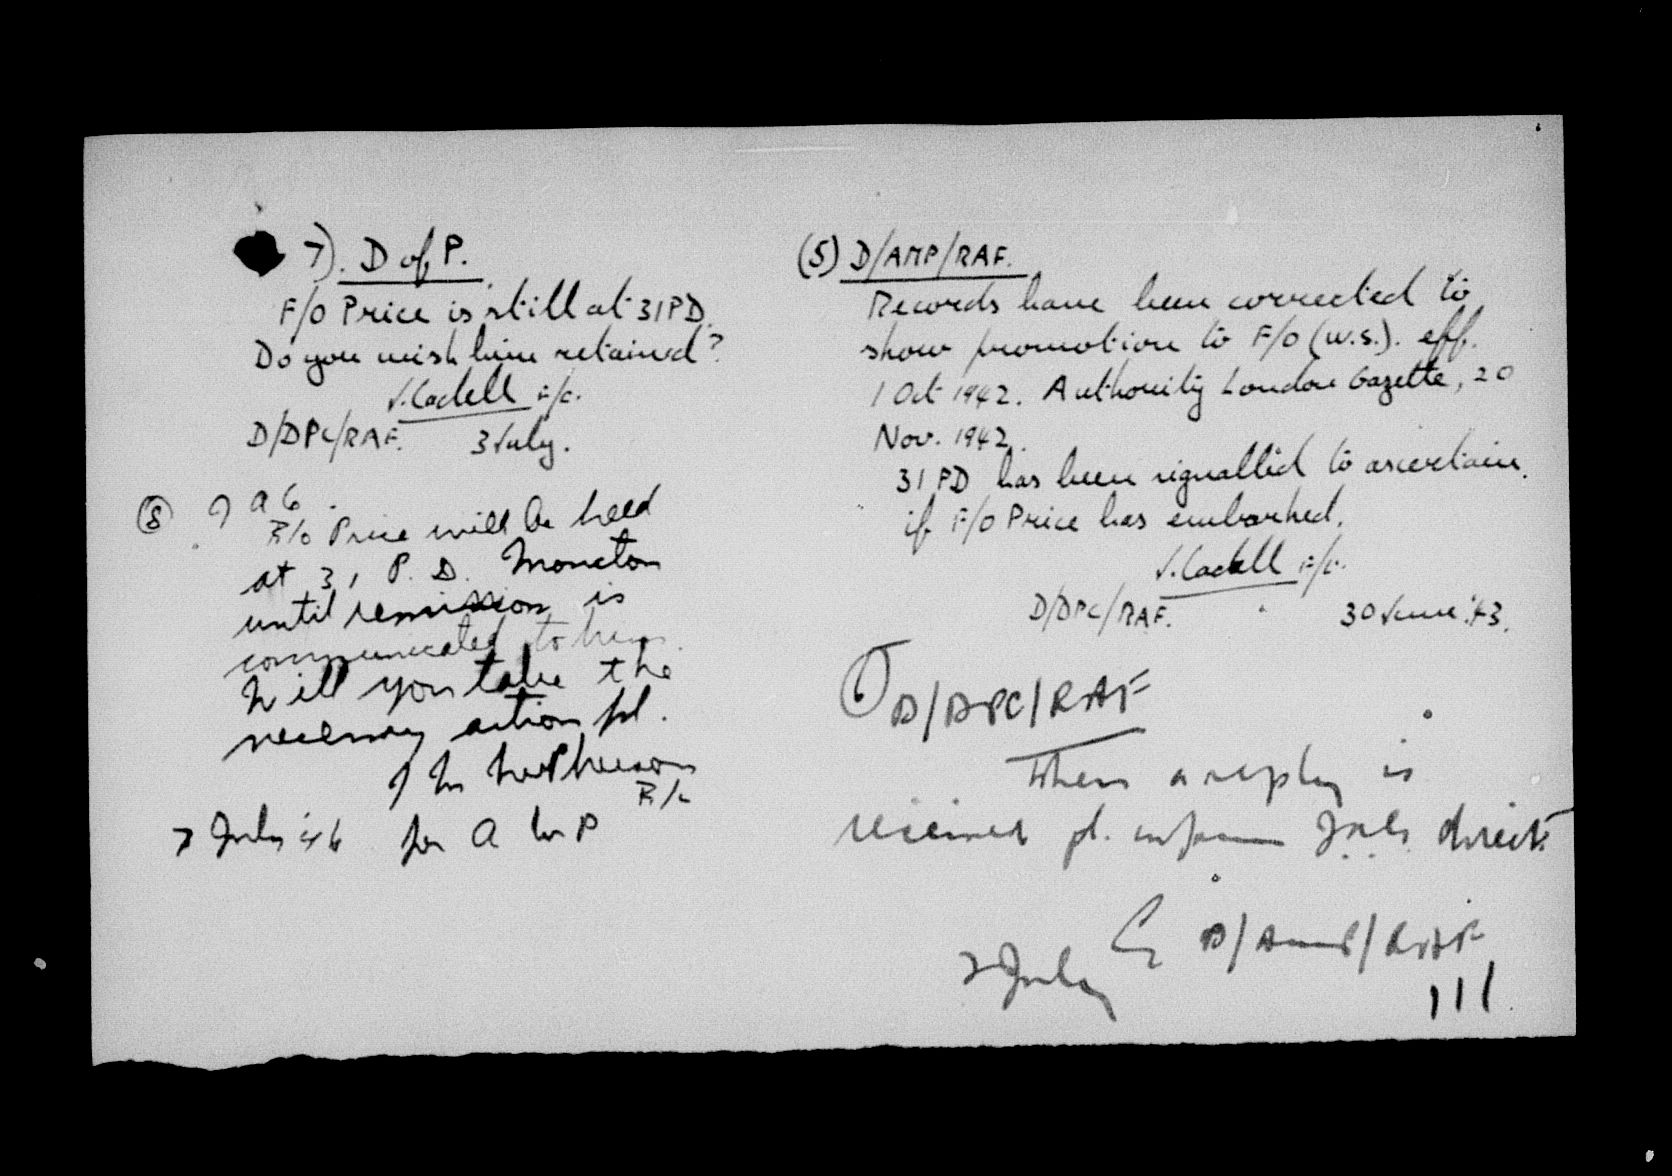 7). D of P.
F/O Price is still at 31 PD.
Do you wish him retained?
J. Cadell F/L.
D/DPC/RAF. 3 July.
(8) A 6
F/O Price will be held
at 31 P. D. Moncton
until remission is
communicated to him.
Will you take the
necessary action pl.
F/L
7 July for A M P
(5) D/AMP/RAF.
Records have been corrected to
show promotion to F/O (W.S.). eff.
1 Oct 1942. Authority London Gazette, 20
Nov. 1942.
31 PD has been signalled to ascertain
if F/O Price has embarked.
J. Cadell F/L.
D/DPC/RAF. 30 June '43.
6 D/DPC/RAF
When a reply is
received pl. inform direct.
D/AMP/RAF
2 July
111